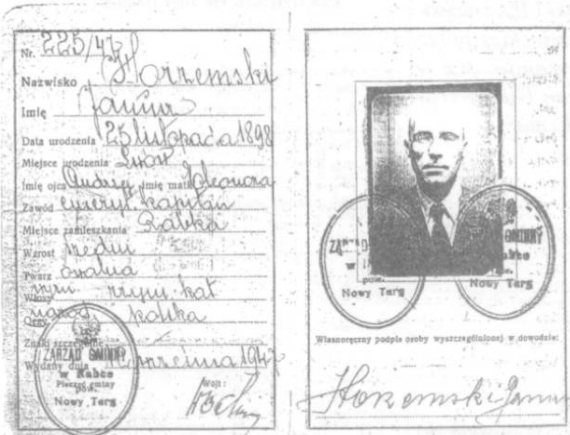 Nr. 225/47
Nazwisko Horzemski
Imię Janusz
Data urodzenia 25 listopada 1898
Miejsce urodzenia Lwów
Imię ojca Andrzej imię matki Eleonora
Zawód emeryt. kapitan
Miejsce zamieszkania Rabka
Wzrost średni
Twarz owalna
Włosy rzym. kat
Oczy
Znaki szczególne
Wydany dnia września 1947
ZARZĄD GMINNY
w Rabce
Pieczęć gminy
pow.
Nowy Targ
Wójt:
ZARZĄD GMINNY
w Rabce
pow.
Nowy Targ
Nowy Targ
Własnoręczny podpis osoby wyszczególnionej w dowodzie:
Horzemski Janusz